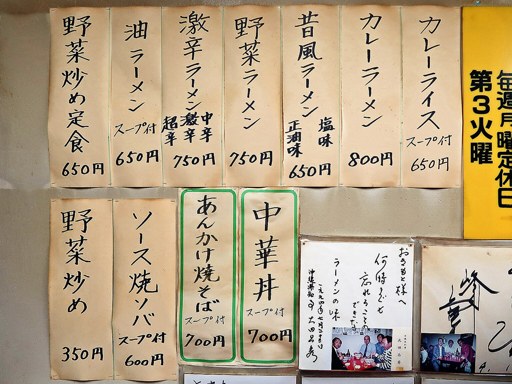 カレーライス
スープ付
650円
カレーラーメン
800円
昔風ラーメン
塩味
正油味
650円
野菜ラーメン
750円
激辛ラーメン
中辛
激辛
超辛
750円
油ラーメン
スープ付
650円
野菜炒め定食
650円
毎週月曜定休日
第3火曜
中華丼
スープ付
700円
あんかけ焼そば
スープ付
700円
ソース焼ソバ
スープ付
600円
野菜炒め
350円
おきもと様へ
何時までも
忘れることの
できない
ラーメンの味